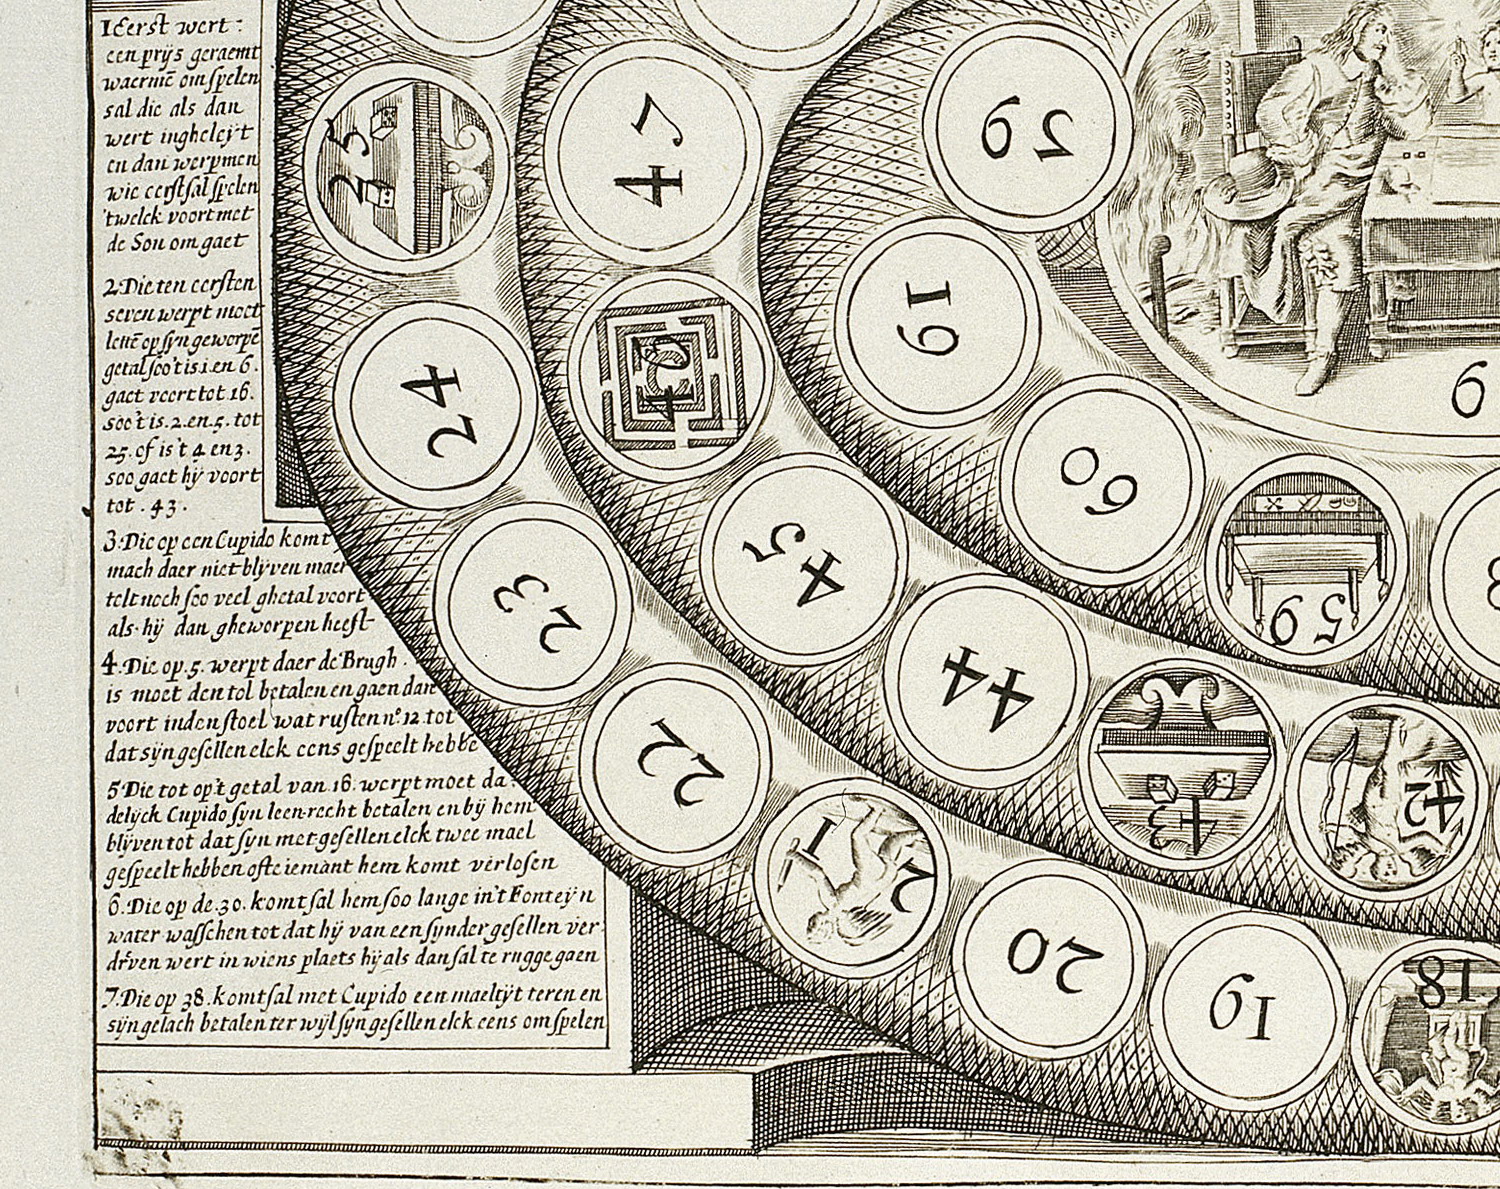 1 Eerst wert:
een prijs geraemt
waermē om spelen
sal die als dan
wert ingheleijt
en dan werpmen
wie eerst sal spelen
twelck voort met
de Son om gaet
2. Die ten eersten
seven werpt moet
lettē op syn geworpē
getal soo't is .1. en 6.
gaet voort tot 16.
soo't is .2. en .5. tot
25. of is 't 4 en 3.
soo gaet hy voort
tot . 43 .
3. Die op een Cupido komt
mach daer niet blyven maer
telt noch soo veel ghetal voort
als hy dan gheworpen heeft
4. Die op .5. werpt daer de Brugh .
is moet den tol betalen en gaen dan
voort in den stoel wat rusten n.º 12. tot
dat syn gesellen elck eens gespeelt hebbē
5 Die tot op't getal van 18. werpt moet da-
delijck Cupido syn leen-recht betalen en by hem
blyven tot dat syn met-gesellen elck twee mael
gespeelt hebben ofte iemant hem komt verlosen
6. Die op de .30. komt sal hem soo lange in't Fonteyn
water wasschen tot dat hy van een synder gesellen ver-
drēven wert in wiens plaets hy als dan sal te rugge gaen
7. Die op 38. komt sal met Cupido een maeltijt teren en
syn gelach betalen ter wyl syn gesellen elck eens om spelen
25
47
29
24
46
61
60
6
59
23
45
44
43
42
22
21
20
19
18